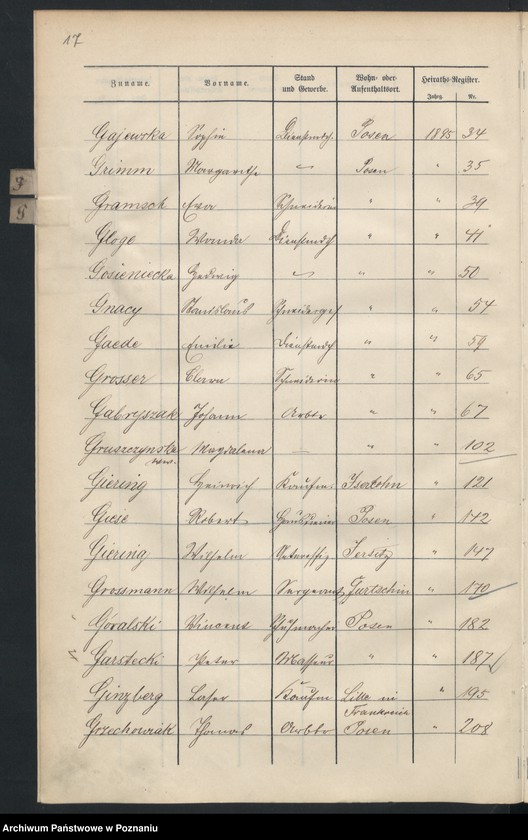 17
Zuname. Vorname. Stand und Gewerbe. Wohn- oder Aufenthaltsort. Heiraths-Register.
Jahrg. Nr.
Gajewska Sophie Dienstmdch. Posen 1895 34
Grimm Margarethe " Posen " 35
Gramsch Eva Schneiderin " " 39
Gloge Wanda Dienstmdch " " 41
Gosieniecka Hedwig " " " 50
Gnacy Stanislaus Schneiderges " " 54
Gaede Emilie Dienstmdch " " 59
Grosser Clara Schneiderin " " 65
Gabryszak Johann Arbtr " " 67
Gruszczynska Magdalena — " " 102
Giering Heinrich Kaufm. Iserlohn " 121
Giese Robert Posen " 142
Giering Wilhelm Jersitz " 147
Grossmann Wilhelm Sergeant Gurtschin " 170
Góralski Vincent Schuhmacher Posen " 182
Garstecki Peter Masseur " " 187
Ginzberg Laser Kaufm Lille in " 195
Frankreich
Grzechowiak Thomas Arbtr Posen " 208
Archiwum Państwowe w Poznaniu